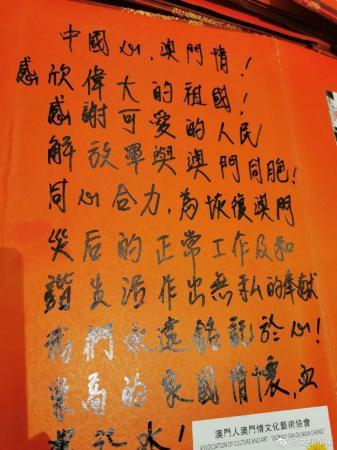 中國心，澳門情！
感欣偉大的祖國！
感謝可愛的人民
解放軍與澳門同胞！
同心合力，為恢復澳門
災后的正常工作及和
諧生活作出無私的奉献
我們永遠銘記於心！
崇高的家國情懷，血
水！
澳門人澳門情文化藝術協會
ASSOCIATION OF CULTURE AND ART